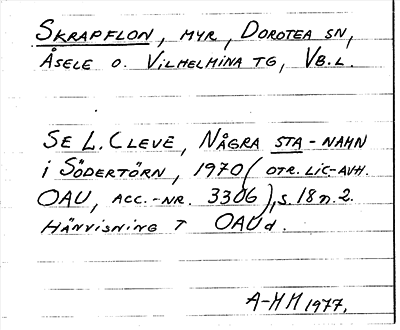 SKRAPFLON, MYR, DOROTEA SN,
ÅSELE O. VILHELMINA TG, VB.L.
SE L. CLEVE, NÅGRA STA-NAMN
I SÖDERTÖRN, 1970 (OTR. LIC-AVH.
OAU, ACC.-NR. 3306), S. 18 n. 2.
HÄNVISNING T OAUd.
A-MM 1977.